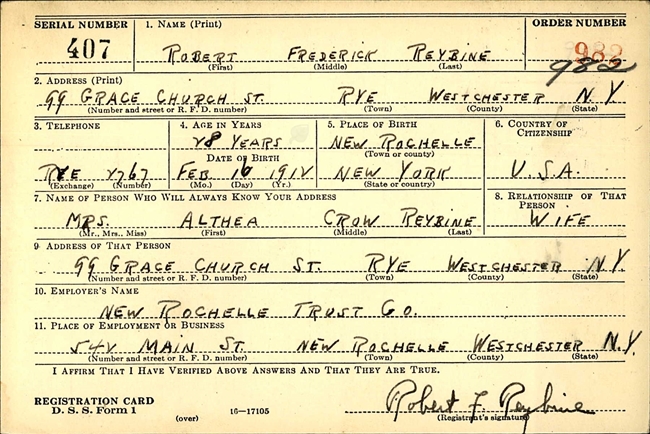 SERIAL NUMBER 1. NAME (Print) ORDER NUMBER
407 ROBERT FREDERICK REYBINE 982
(First) (Middle) (Last) 982
2. ADDRESS (Print)
99 GRACE CHURCH ST. RYE WESTCHESTER N.Y
(Number and street or R. F. D. number) (Town) (County) (State)
3. TELEPHONE 4. AGE IN YEARS 5. PLACE OF BIRTH 6. COUNTRY OF CITIZENSHIP
28 YEARS NEW ROCHELLE
DATE OF BIRTH (Town or county)
RYE 2767 FEB 16 1912 NEW YORK U.S.A.
(Exchange) (Number) (Mo.) (Day) (Yr.) (State or country)
7. NAME OF PERSON WHO WILL ALWAYS KNOW YOUR ADDRESS 8. RELATIONSHIP OF THAT PERSON
MRS. ALTHEA CROW REYBINE WIFE
(Mr., Mrs., Miss) (First) (Middle) (Last)
9. ADDRESS OF THAT PERSON
99 GRACE CHURCH ST. RYE WESTCHESTER N.Y.
(Number and street or R. F. D. number) (Town) (County) (State)
10. EMPLOYER'S NAME
NEW ROCHELLE TRUST CO.
11. PLACE OF EMPLOYMENT OR BUSINESS
542 MAIN ST. NEW ROCHELLE WESTCHESTER N.Y.
(Number and street or R. F. D. number) (Town) (County) (State)
I AFFIRM THAT I HAVE VERIFIED ABOVE ANSWERS AND THAT THEY ARE TRUE.
REGISTRATION CARD Robert F. Reybine
D. S. S. Form 1 (over) 16—17105 (Registrant's signature)